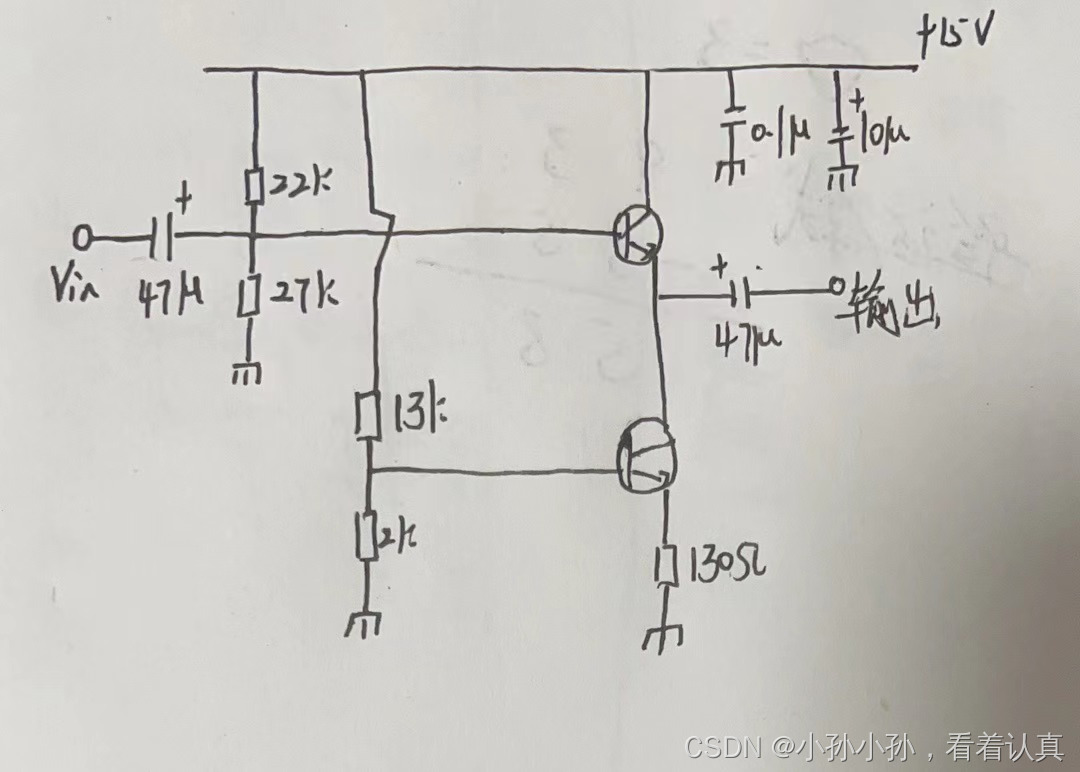 +15V
0.1μ
10μ
+
22k
+
Vin
47μ
27k
+
输出
47μ
13k
2k
130Ω
CSDN @小孙小孙，看着认真